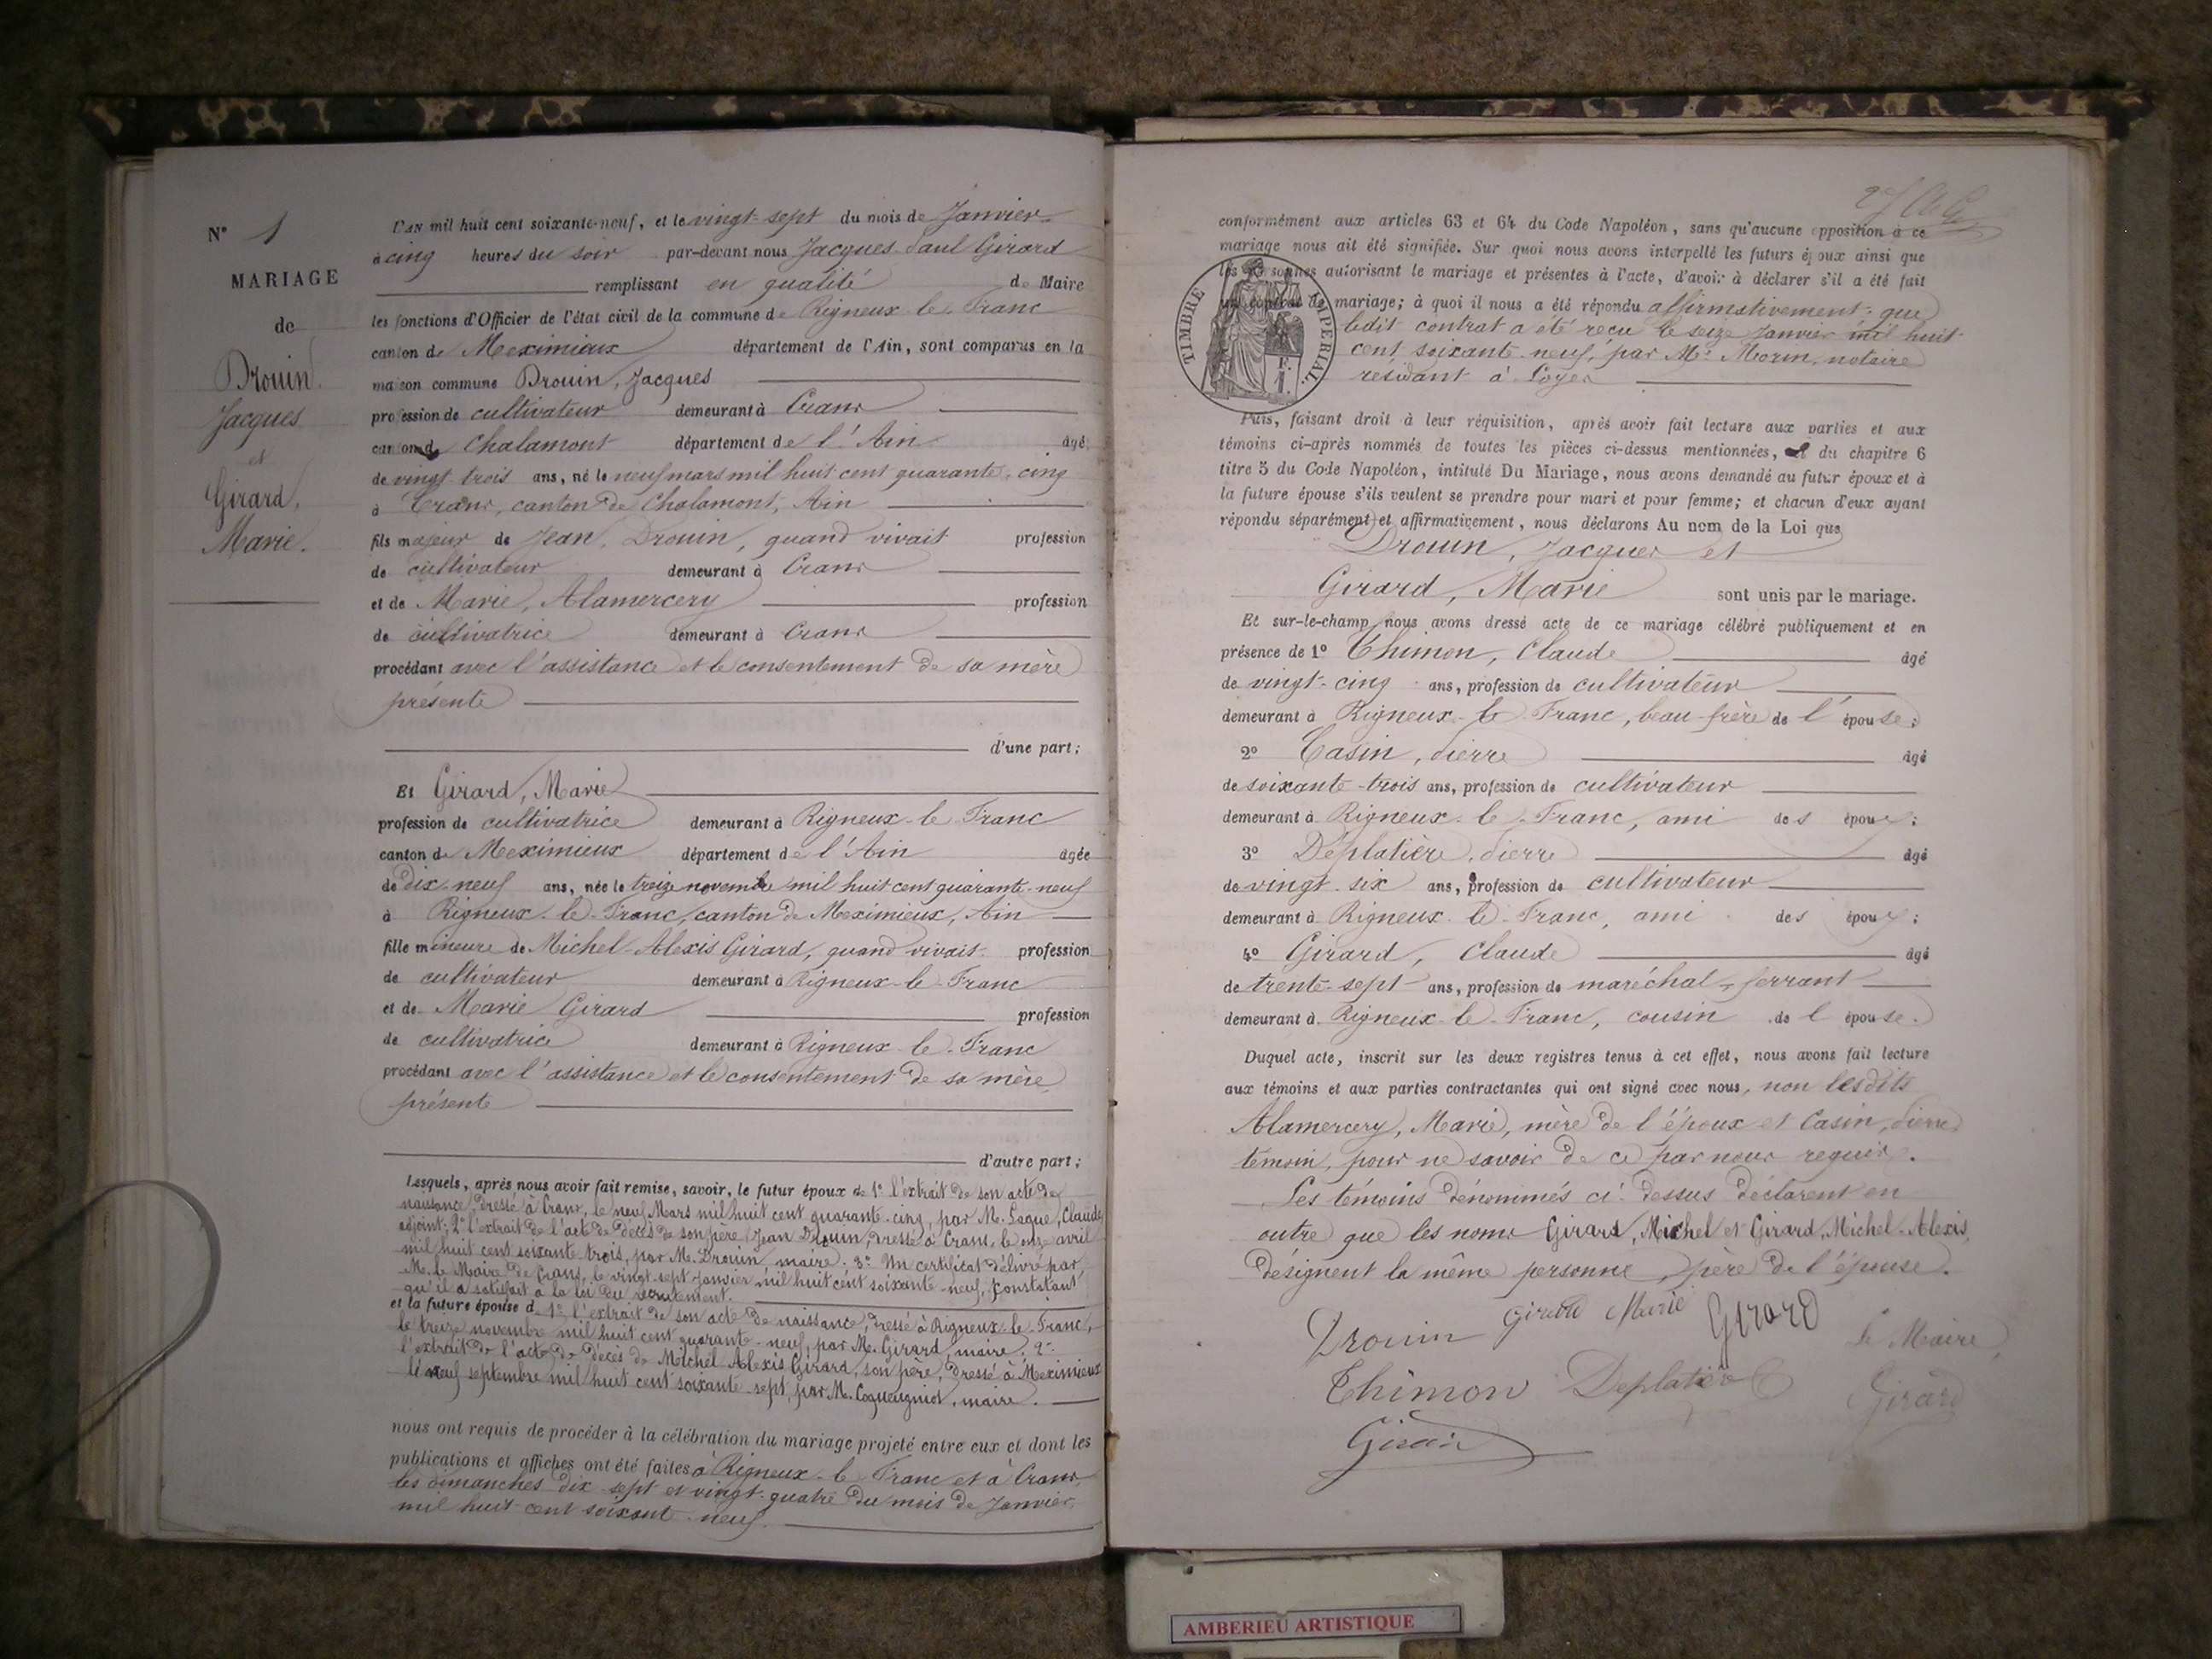 N° 1
MARIAGE
de
Drouin
Jacques
et
Girard,
Marie.
L'AN mil huit cent soixante-neuf, et le vingt-sept du mois de Janvier
à cinq heures du soir par-devant nous Jacques-Paul Girard
remplissant en qualité de Maire
les fonctions d'Officier de l'état civil de la commune de Rigneux-le-Franc
canton de Meximieux département de l'Ain, sont comparus en la
maison commune Drouin, Jacques
profession de cultivateur demeurant à Crans
canton de Chalamont département de l'Ain âgé
de vingt-trois ans, né le neuf mars mil huit cent quarante-cinq
à Crans, canton de Chalamont, Ain
fils majeur de Jean, Drouin, quand vivait profession
de cultivateur demeurant à Crans
et de Marie, Alamercery profession
de cultivatrice demeurant à Crans
procédant avec l'assistance et le consentement de sa mère
présente
d'une part;
Et Girard, Marie
profession de cultivatrice demeurant à Rigneux-le-Franc
canton de Meximieux département de l'Ain âgée
de dix-neuf ans, née le treize novembre mil huit cent quarante-neuf
à Rigneux-le-Franc, canton de Meximieux, Ain
fille mineure de Michel-Alexis Girard, quand vivait profession
de cultivateur demeurant à Rigneux-le-Franc
et de Marie Girard profession
de cultivatrice demeurant à Rigneux-le-Franc
procédant avec l'assistance et le consentement de sa mère
présente
d'autre part;
Lesquels, après nous avoir fait remise, savoir, le futur époux de 1° l'extrait de son acte de
naissance, dressé à Crans, le neuf Mars mil huit cent quarante-cinq, par M. Claude
adjoint; 2° l'extrait de l'acte de décès de son père Jean Drouin, dressé à Crans, le onze avril
mil huit cent soixante trois, par M. Drouin, maire; 3° Un certificat délivré par
M. le Maire de Crans, le vingt-sept Janvier mil huit cent soixante-neuf, constatant
qu'il a satisfait à la loi du recrutement.
et la future épouse d 1° l'extrait de son acte de naissance, dressé à Rigneux-le-Franc,
le treize novembre mil huit cent quarante-neuf, par M. Girard, maire; 2°
l'extrait de l'acte de décès de Michel-Alexis Girard, son père, dressé à Meximieux
le neuf septembre mil huit cent soixante-sept, par M. maire.
nous ont requis de procéder à la célébration du mariage projeté entre eux et dont les
publications et affiches ont été faites à Rigneux-le-Franc et à Crans
les dimanches dix-sept et vingt-quatre du mois de Janvier
mil huit cent soixante-neuf.
conformément aux articles 63 et 64 du Code Napoléon, sans qu'aucune opposition à ce
mariage nous ait été signifiée. Sur quoi nous avons interpellé les futurs époux ainsi que
les personnes autorisant le mariage et présentes à l'acte, d'avoir à déclarer s'il a été fait
un contrat de mariage; à quoi il nous a été répondu affirmativement: que
ledit contrat a été reçu le seize Janvier mil huit
cent soixante-neuf, par Me Morin, notaire
résidant à Loyes
TIMBRE IMPERIAL.
F.
1.
Puis, faisant droit à leur réquisition, après avoir fait lecture aux parties et aux
témoins ci-après nommés de toutes les pièces ci-dessus mentionnées, du chapitre 6
titre 5 du Code Napoléon, intitulé Du Mariage, nous avons demandé au futur époux et à
la future épouse s'ils veulent se prendre pour mari et pour femme; et chacun d'eux ayant
répondu séparément et affirmativement, nous déclarons Au nom de la Loi que
Drouin, Jacques et
Girard, Marie sont unis par le mariage.
Et sur-le-champ nous avons dressé acte de ce mariage célébré publiquement et en
présence de 1° Thimon, Claude âgé
de vingt-cinq ans, profession de cultivateur
demeurant à Rigneux-le-Franc, beau-frère de l'épouse;
2° Casin, Pierre âgé
de soixante-trois ans, profession de cultivateur
demeurant à Rigneux-le-Franc, ami des époux;
3° Déplatière, Pierre âgé
de vingt-six ans, profession de cultivateur
demeurant à Rigneux-le-Franc, ami des époux;
4° Girard, Claude âgé
de trente-sept ans, profession de maréchal-ferrant
demeurant à Rigneux-le-Franc, cousin de l'épouse.
Duquel acte, inscrit sur les deux registres tenus à cet effet, nous avons fait lecture
aux témoins et aux parties contractantes qui ont signé avec nous, non lesdits
Alamercery, Marie, mère de l'époux et Casin, Pierre
témoin, pour ne savoir de ce par nous requis.
Les témoins dénommés ci-dessus déclarent en
outre que les noms Girard, Michel et Girard, Michel-Alexis,
désignent la même personne, père de l'épouse.
Drouin Girard Marie Girard
le Maire,
Thimon Deplatière Girard
Girard
AMBERIEU ARTISTIQUE